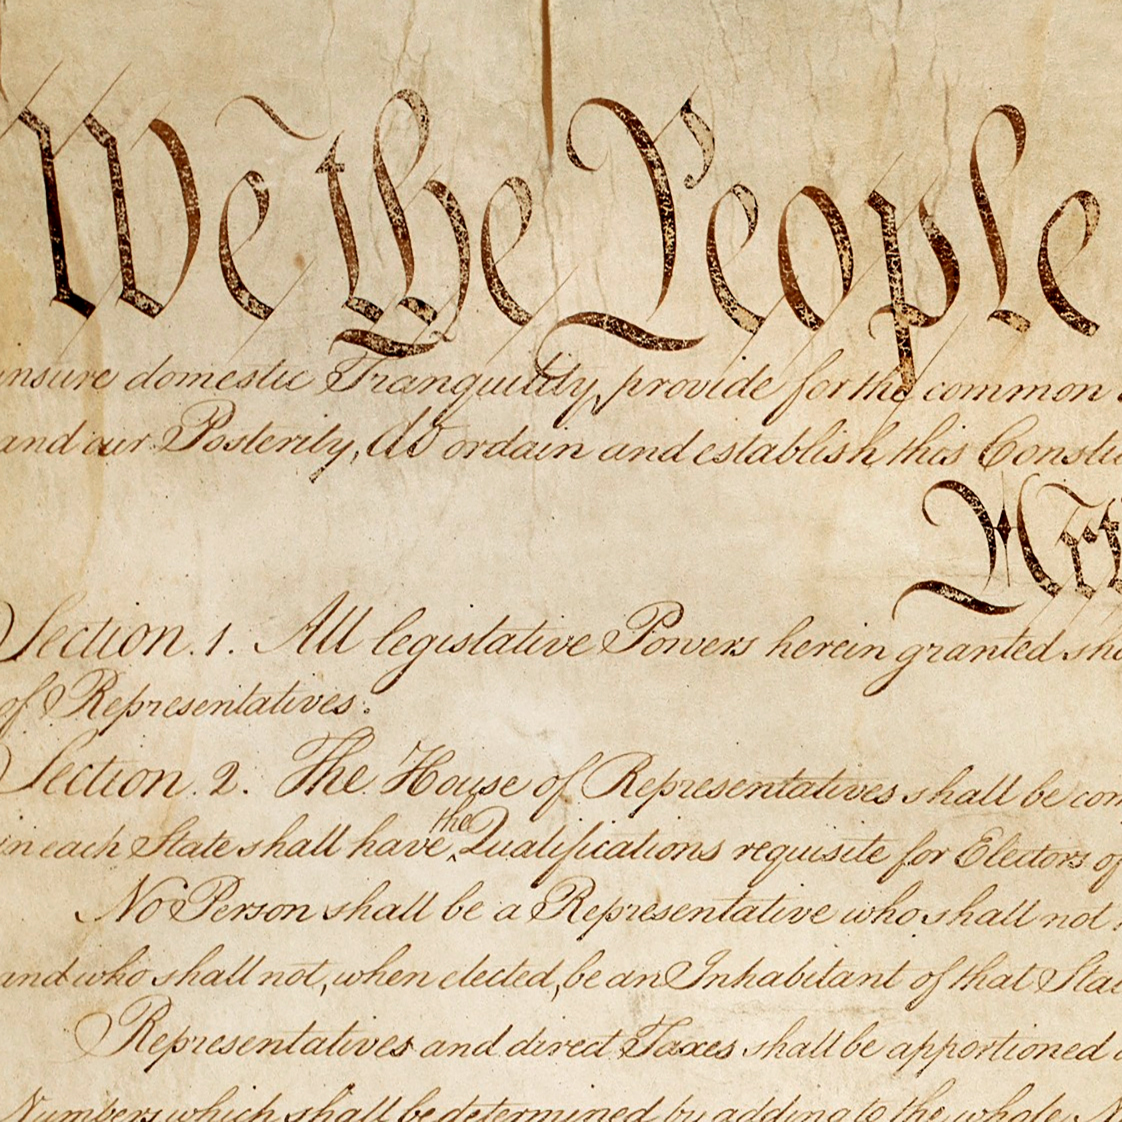 We the People
insure domestic Tranquility, provide for the common
and our Posterity, do ordain and establish this Constit
Art
Section. 1. All legislative Powers herein granted sha
of Representatives.
Section. 2. The House of Representatives shall be com
in each State shall have the Qualifications requisite for Electors of
No Person shall be a Representative who shall not
and who shall not, when elected, be an Inhabitant of that Stat
Representatives and direct Taxes shall be apportioned
Numbers, which shall be determined by adding to the whole N